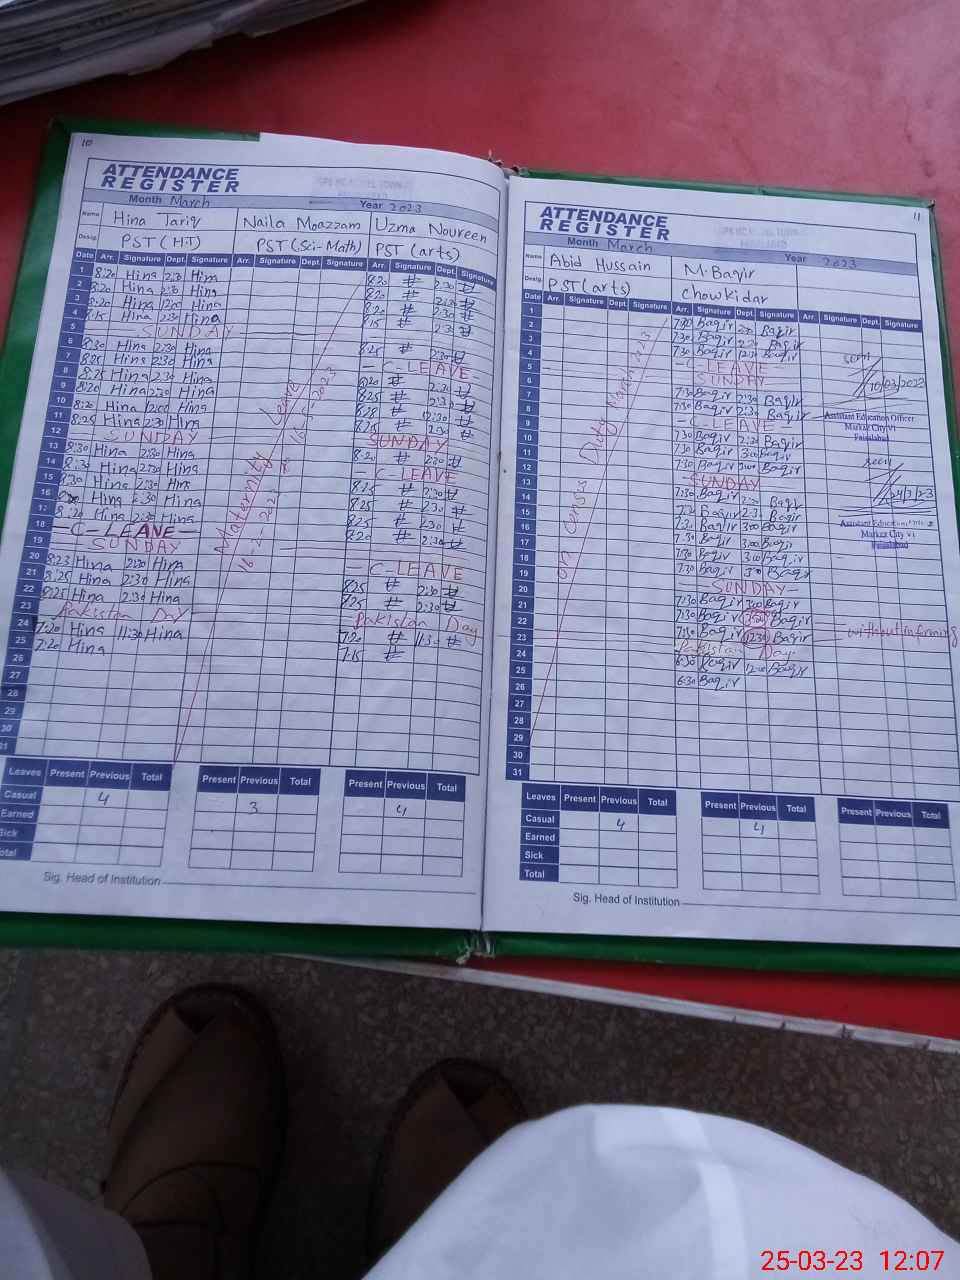 10
ATTENDANCE
REGISTER
Month March Year 2023
Name Hina Tariq Naila Moazzam Uzma Noureen
Desig. PST (H.T) PST (Sci-Math) PST (arts)
Date Arr. Signature Dept. Signature Arr. Signature Dept. Signature Arr. Signature Dept. Signature
1 8:20 Hina 2:30 Hina 8:20 # 2:30 #
2 8:20 Hina 2:30 Hina 8:20 #
3 8:20 Hina 12:00 Hina 8:20 #
4 8:15 Hina 2:30 Hina 8:15 # 2:30 #
5 SUNDAY
6 8:30 Hina 2:30 Hina 8:25 # 2:30 #
7 8:25 Hina 2:30 Hina - C-LEAVE -
8 8:25 Hina 2:30 Hina 8:20 # 2:30 #
9 8:20 Hina 2:30 Hina 8:25 # 2:30 #
10 8:20 Hina Hina 8:28 #
11 8:25 Hina 2:30 Hina 8:25 #
12 SUNDAY SUNDAY
13 8:30 Hina 2:30 Hina 8:20 # 2:30 #
14 8:30 Hina 2:30 Hina - C-LEAVE
15 8:30 Hina 2:30 Hina 8:25 # 2:30 #
16 Hina 2:30 Hina 8:25 # 2:30 #
17 8:20 Hina 2:30 Hina 8:25 # 2:30 #
18 - C-LEAVE - 8:20 # 2:30 #
19 SUNDAY
20 8:23 Hina 2:30 Hina - C-LEAVE
21 8:25 Hina 2:30 Hina 8:25 # 2:30 #
22 8:25 Hina 2:30 Hina 8:25 # 2:30 #
23 Pakistan Day Pakistan Day
24 7:20 Hina 11:30 Hina 7:20 # 11:30 #
25 7:20 Hina 7:15 #
26
27
28
29
30
31
Maternity Leave
16-2-2023 to 16-5-2023
Leaves Present Previous Total Present Previous Total Present Previous Total
Casual 4 3 4
Earned
Sick
Total
Sig. Head of Institution
11
ATTENDANCE
REGISTER
Month March Year 2023
Name Abid Hussain M.Baqir
Desig. PST (arts) Chowkidar
Date Arr. Signature Dept. Signature Arr. Signature Dept. Signature Arr. Signature Dept. Signature
1 7:30 Baqir Baqir
2 7:30 Baqir Baqir
3 7:30 Baqir 12:30 Baqir
4 - C-LEAVE -
5 SUNDAY
6 7:30 Baqir 2:30 Baqir
7 7:30 Baqir 2:30 Baqir
8 - C-LEAVE -
9 7:30 Baqir 2:30 Baqir
10 7:30 Baqir 3:00 Baqir
11 7:30 Baqir 3:00 Baqir
12 - SUNDAY
13 7:30 Baqir 2:30 Baqir
14 7:30 Baqir 2:30 Baqir
15 7:30 Baqir 3:00 Baqir
16 7:30 Baqir 3:00 Baqir
17 7:30 Baqir 3:00 Baqir
18 7:30 Baqir 3:00 Baqir
19 SUNDAY -
20 7:30 Baqir 3:00 Baqir
21 7:30 Baqir Baqir
22 7:30 Baqir 12:30 Baqir without informing
23 Pakistan Day
24 6:30 Baqir 12:00 Baqir
25 6:30 Baqir
26
27
28
29
30
31
on Census Duty March 2023
10/03/2023
Assistant Education Officer
Markaz City VI
Faisalabad
24/3/23
Assistant Education Officer
Markaz City VI
Faisalabad
Leaves Present Previous Total Present Previous Total Present Previous Total
Casual 4 4
Earned
Sick
Total
Sig. Head of Institution
25-03-23 12:07